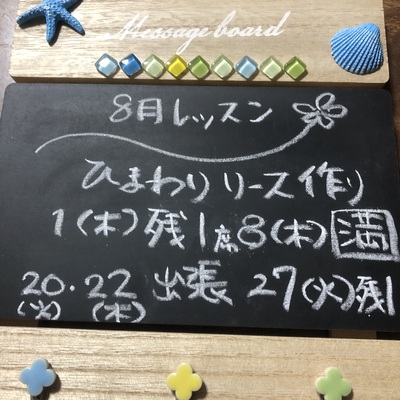 Message board
8月レッスン
ひまわりリース作り
1(木)残1席 8(木)満
20・22 出張 27(火)残1
(火) (木)